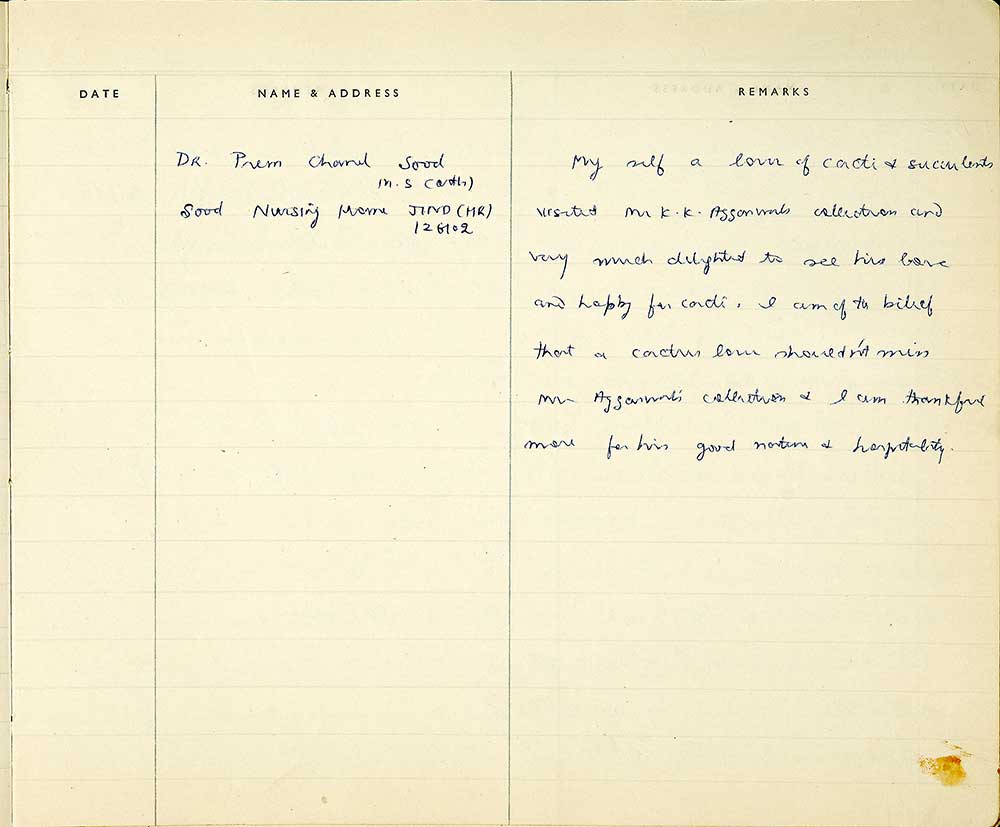 DATE NAME & ADDRESS REMARKS
DR. Prem Chand Sood
M.S (Orth)
Sood Nursing Home JIND (HR)
126102
My self a lover of cacti & succulents
visited Mr K.K. Aggarwal's collection and
very much delighted to see his love
and happy for cacti. I am of the belief
that a cactus lover shouldn't miss
Mr Aggarwal's collection & I am thankful
more for his good nature & hospitality.